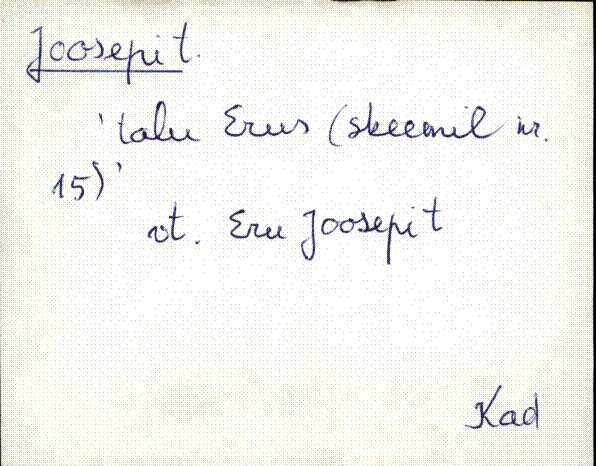 Joosepit.
'talu Erus (skeemil nr.
15)'
vt. Eru Joosepit
Kad